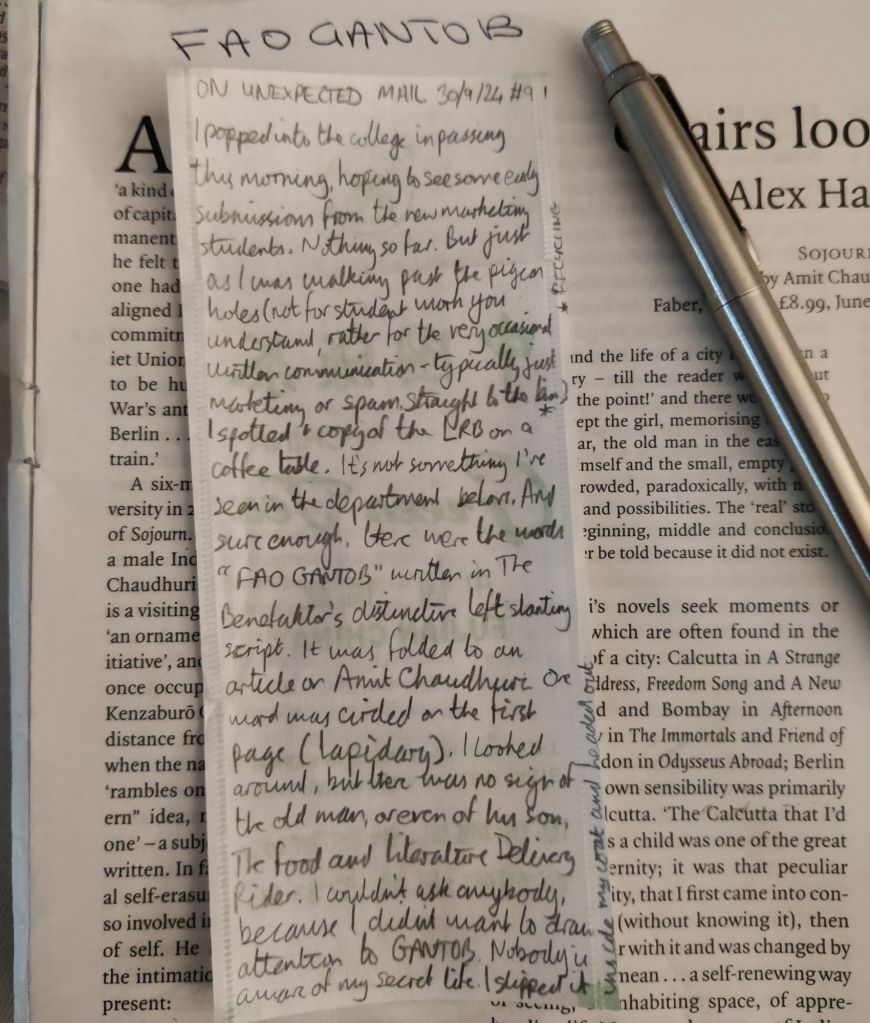 FAO GANTOB
ON UNEXPECTED MAIL 30/9/24 #91
I popped into the college in passing
this morning, hoping to see some early
submissions from the new marketing
students. Nothing so far. But just
as I was walking past the pigeon
holes (not for student work you
understand, rather for the very occasional
written communication - typically just
marketing or spam, straight to the bin)
*
I spotted a copy of the LRB on a
coffee table. It's not something I've
seen in the department before. And
sure enough, there were the words
"FAO GANTOB" written in The
Benefaktor's distinctive left slanting
script. It was folded to an
article on Amit Chaudhuri. One
word was circled on the first
page (lapidary). I looked
around, but there was no sign of
the old man, or even of his son,
The Food and Literature Delivery
Rider. I couldn't ask anybody,
because I didn't want to draw
attention to GANTOB. Nobody is
aware of my secret life. I slipped it
inside my coat and headed out
* RECYCLING
A
'a kind
of capit
manent
he felt t
one had
aligned
commitm
iet Union
to be hu
War's ant
Berlin . . .
train.'
A six-m
versity in 2
of Sojourn.
a male Ind
Chaudhuri
is a visiting
'an orname
itiative', and
once occup
Kenzaburō
distance fro
when the na
'rambles on
ern" idea,
one' – a subj
written. In f
al self-erasu
so involved i
of self. He
the intimatio
present:
airs loo
Alex Ha
SOJOUR
by Amit Chau
Faber, £8.99, June
and the life of a city in a
ry – till the reader
the point!' and there
ept the girl, memorising
ar, the old man in the
mself and the small, empty
rowded, paradoxically, with
and possibilities. The 'real'
eginning, middle and conclusio
r be told because it did not exist.
i's novels seek moments or
which are often found in the
of a city: Calcutta in A Strange
ddress, Freedom Song and A New
d and Bombay in Afternoon
in The Immortals and Friend of
don in Odysseus Abroad; Berlin
own sensibility was primarily
lcutta. 'The Calcutta that I'd
s a child was one of the great
ernity; it was that peculiar
ity, that I first came into con-
(without knowing it), then
r with it and was changed by
mean . . . a self-renewing way
of seeing, inhabiting space, of appre-